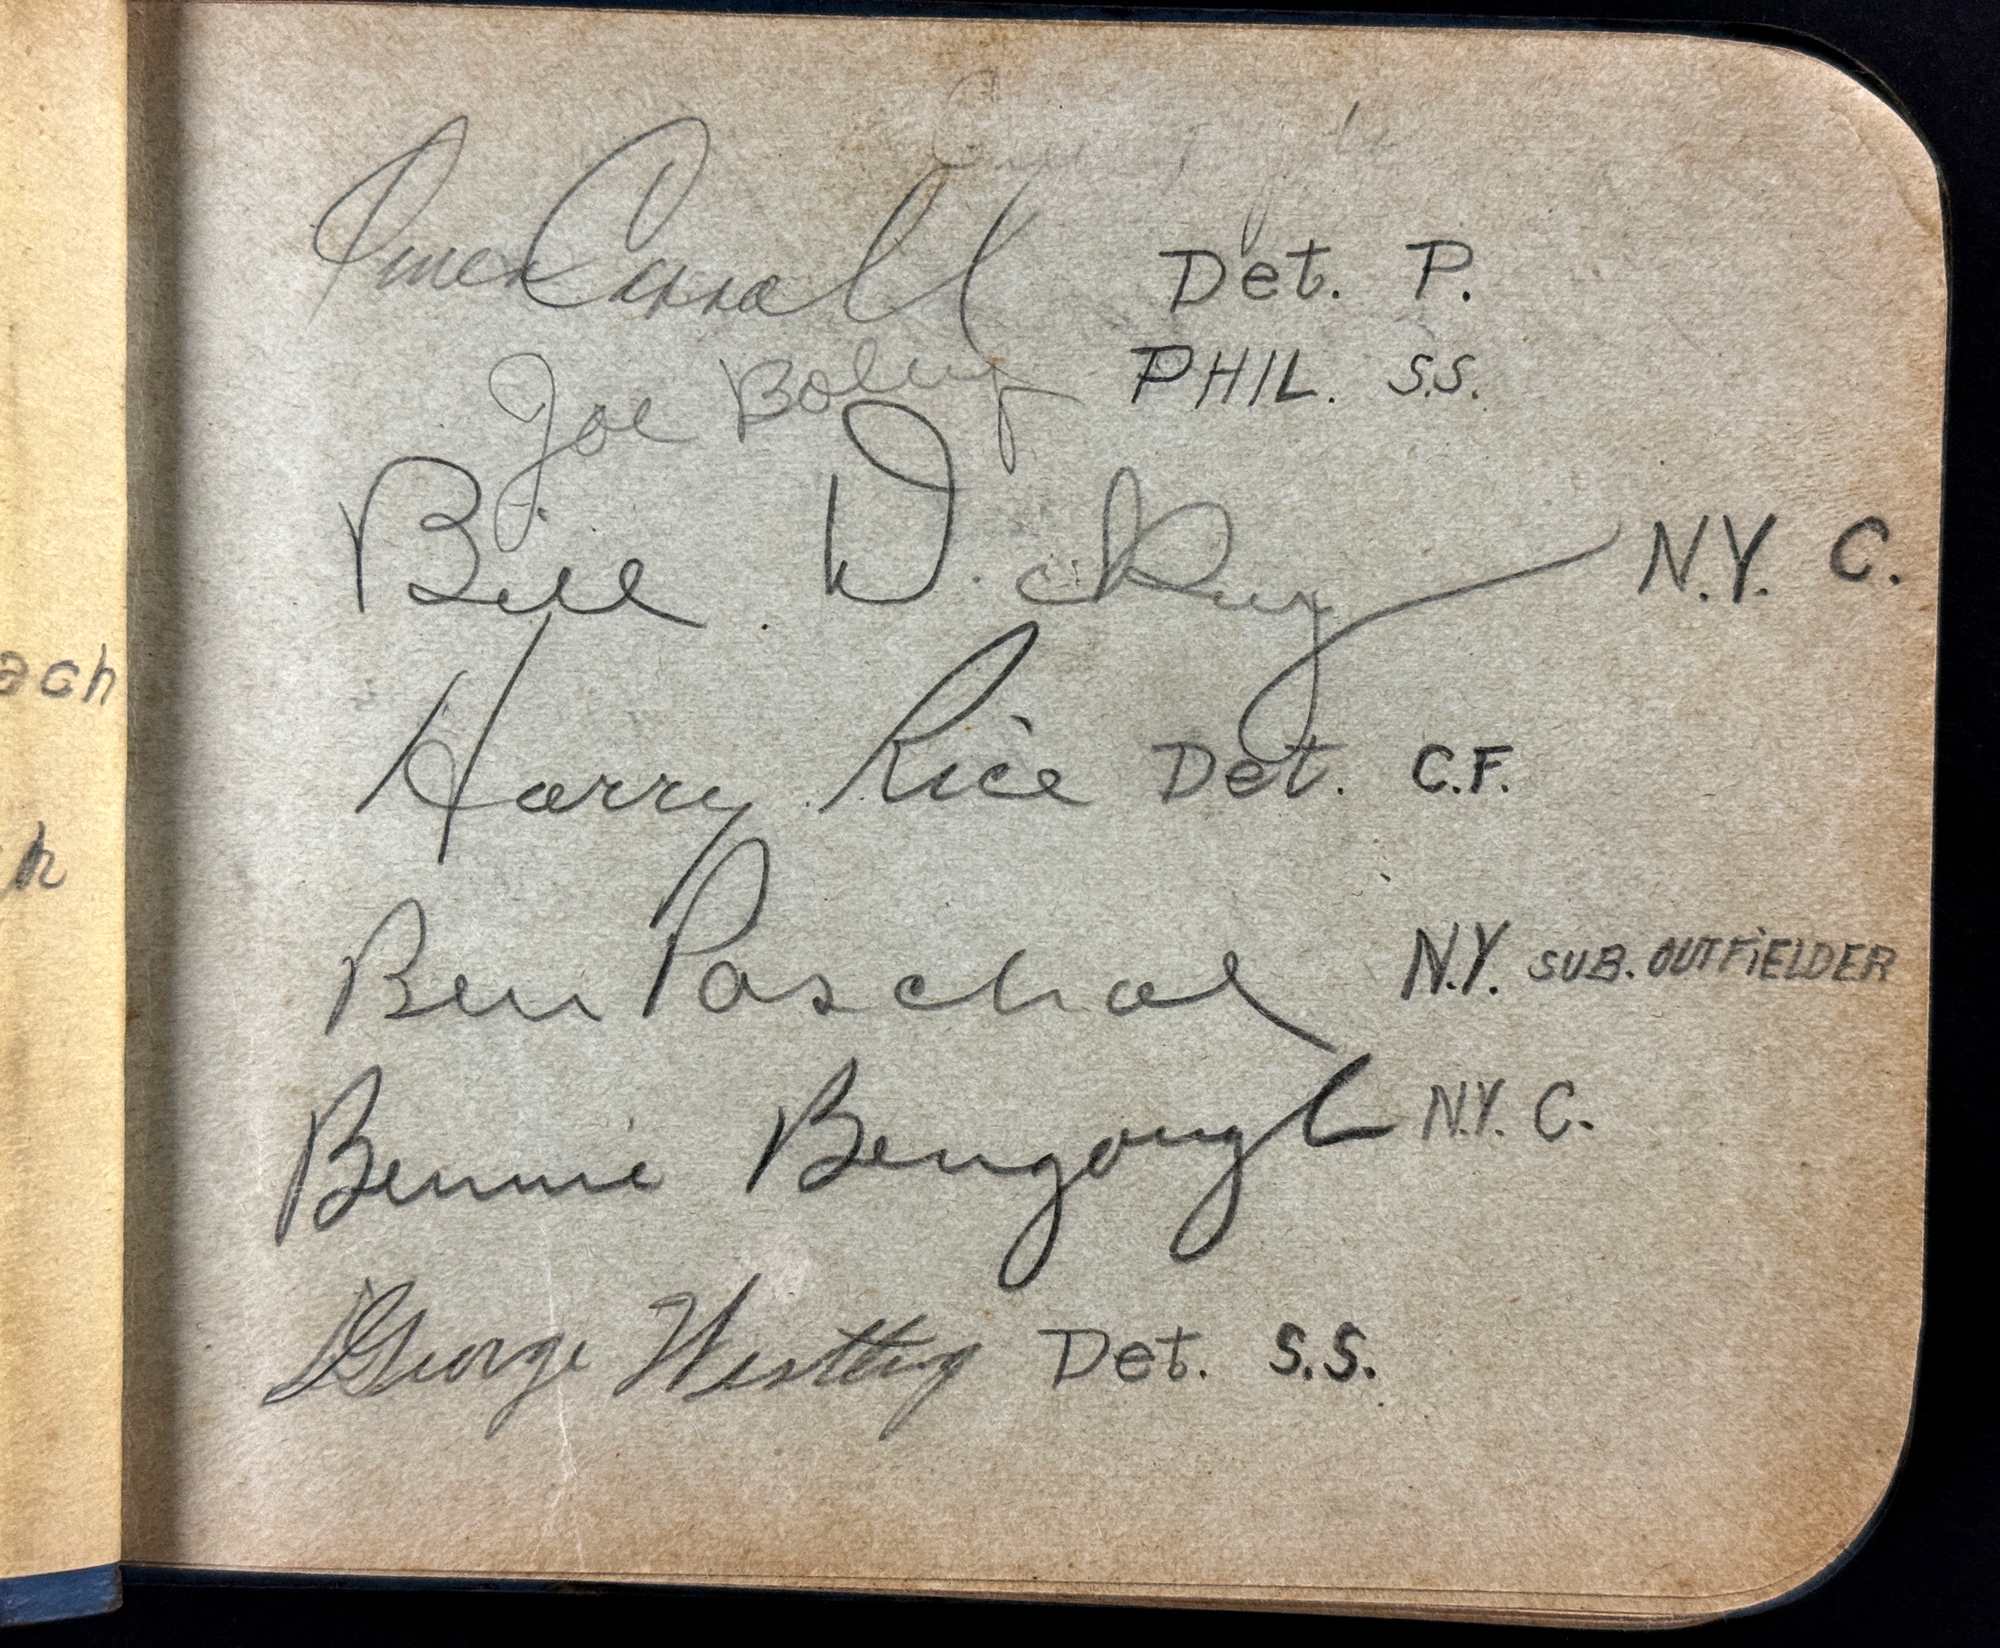 Owen Carroll Det. P.
Joe Boley PHIL. S.S.
Bill Dickey N.Y. C.
Harry Rice Det. C.F.
Ben Paschal N.Y. SUB. OUTFIELDER
Bennie Bengough N.Y. C.
George Westling Det. S.S.
ach
h